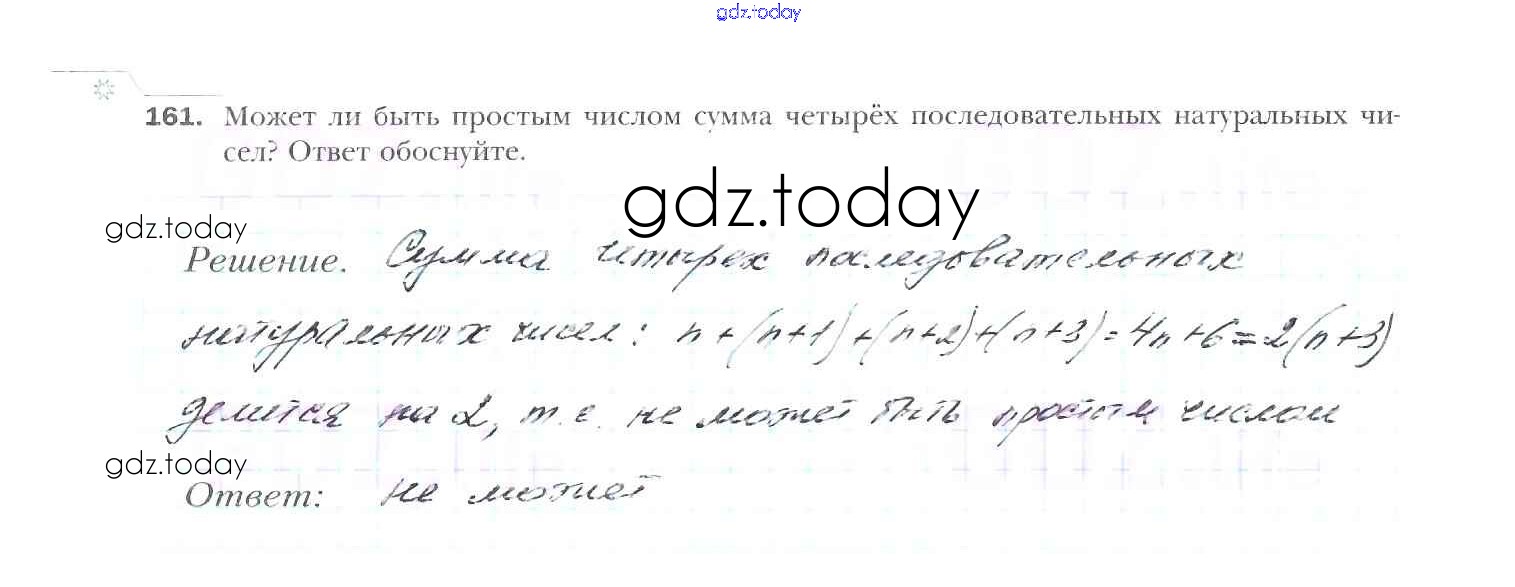 gdz.today
161. Может ли быть простым числом сумма четырёх последовательных натуральных чи-
сел? Ответ обоснуйте.
gdz.today
gdz.today
Решение. Сумма четырех последовательных
натуральных чисел: n+(n+1)+(n+2)+(n+3)=4n+6=2(n+3)
делится на 2, т.е. не может быть простым числом
gdz.today
Ответ: не может